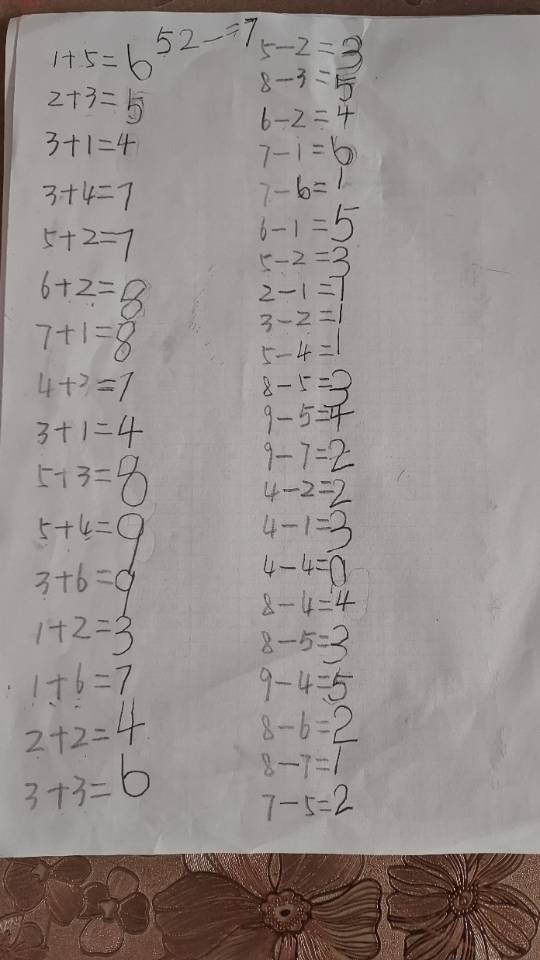 52-=7
1+5=6
2+3=5
3+1=4
3+4=7
5+2=7
6+2=8
7+1=8
4+3=7
3+1=4
5+3=8
5+4=9
3+6=9
1+2=3
1+6=7
2+2=4
3+3=6
5-2=3
8-3=5
6-2=4
7-1=6
7-6=1
6-1=5
5-2=3
2-1=1
3-2=1
5-4=1
8-5=3
9-5=4
9-7=2
4-2=2
4-1=3
4-4=0
8-4=4
8-5=3
9-4=5
8-6=2
8-7=1
7-5=2